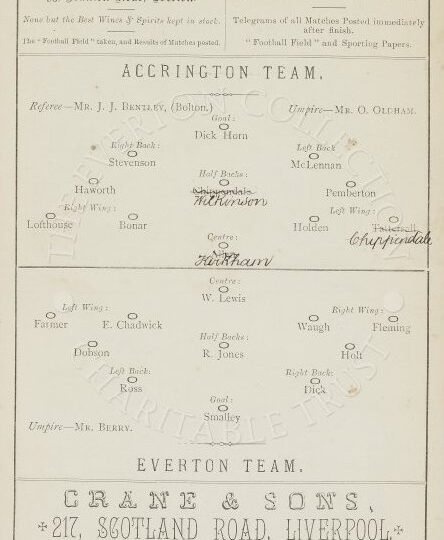 None but the Best Wines & Spirits kept in stock.
The "Football Field" taken, and Results of Matches posted.
Telegrams of all Matches Posted immediately
after finish.
"Football Field" and Sporting Papers.
ACCRINGTON TEAM.
Referee—MR. J. J. BENTLEY, (Bolton.)
Umpire—MR. O. OLDHAM.
Goal:
Dick Horn
Right Back:
Stevenson
Left Back
McLennan
Half Backs:
Haworth
Chippendale
Wilkinson
Pemberton
Right Wing:
Left Wing:
Lofthouse
Bonar
Holden
Tattersall
Chippendale
Centre:
Kirkham
Centre:
W. Lewis
Left Wing:
Right Wing:
Farmer
E. Chadwick
Waugh
Fleming
Half Backs:
Dobson
R. Jones
Holt
Left Back:
Right Back:
Ross
Dick
Goal:
Smalley
Umpire—MR. BERRY.
EVERTON TEAM.
CRANE & SONS,
217, SCOTLAND ROAD, LIVERPOOL
THE EVERTON COLLECTION
CHARITABLE TRUST